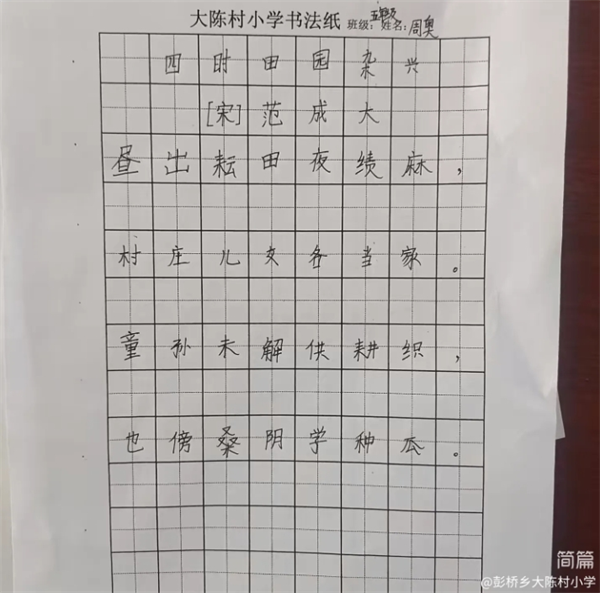 大陈村小学书法纸 班级:五年级 姓名:周奥
四时田园杂兴
[宋]范成大
昼出耘田夜绩麻,
村庄儿女各当家。
童孙未解供耕织,
也傍桑阴学种瓜。
简篇
@彭桥乡大陈村小学